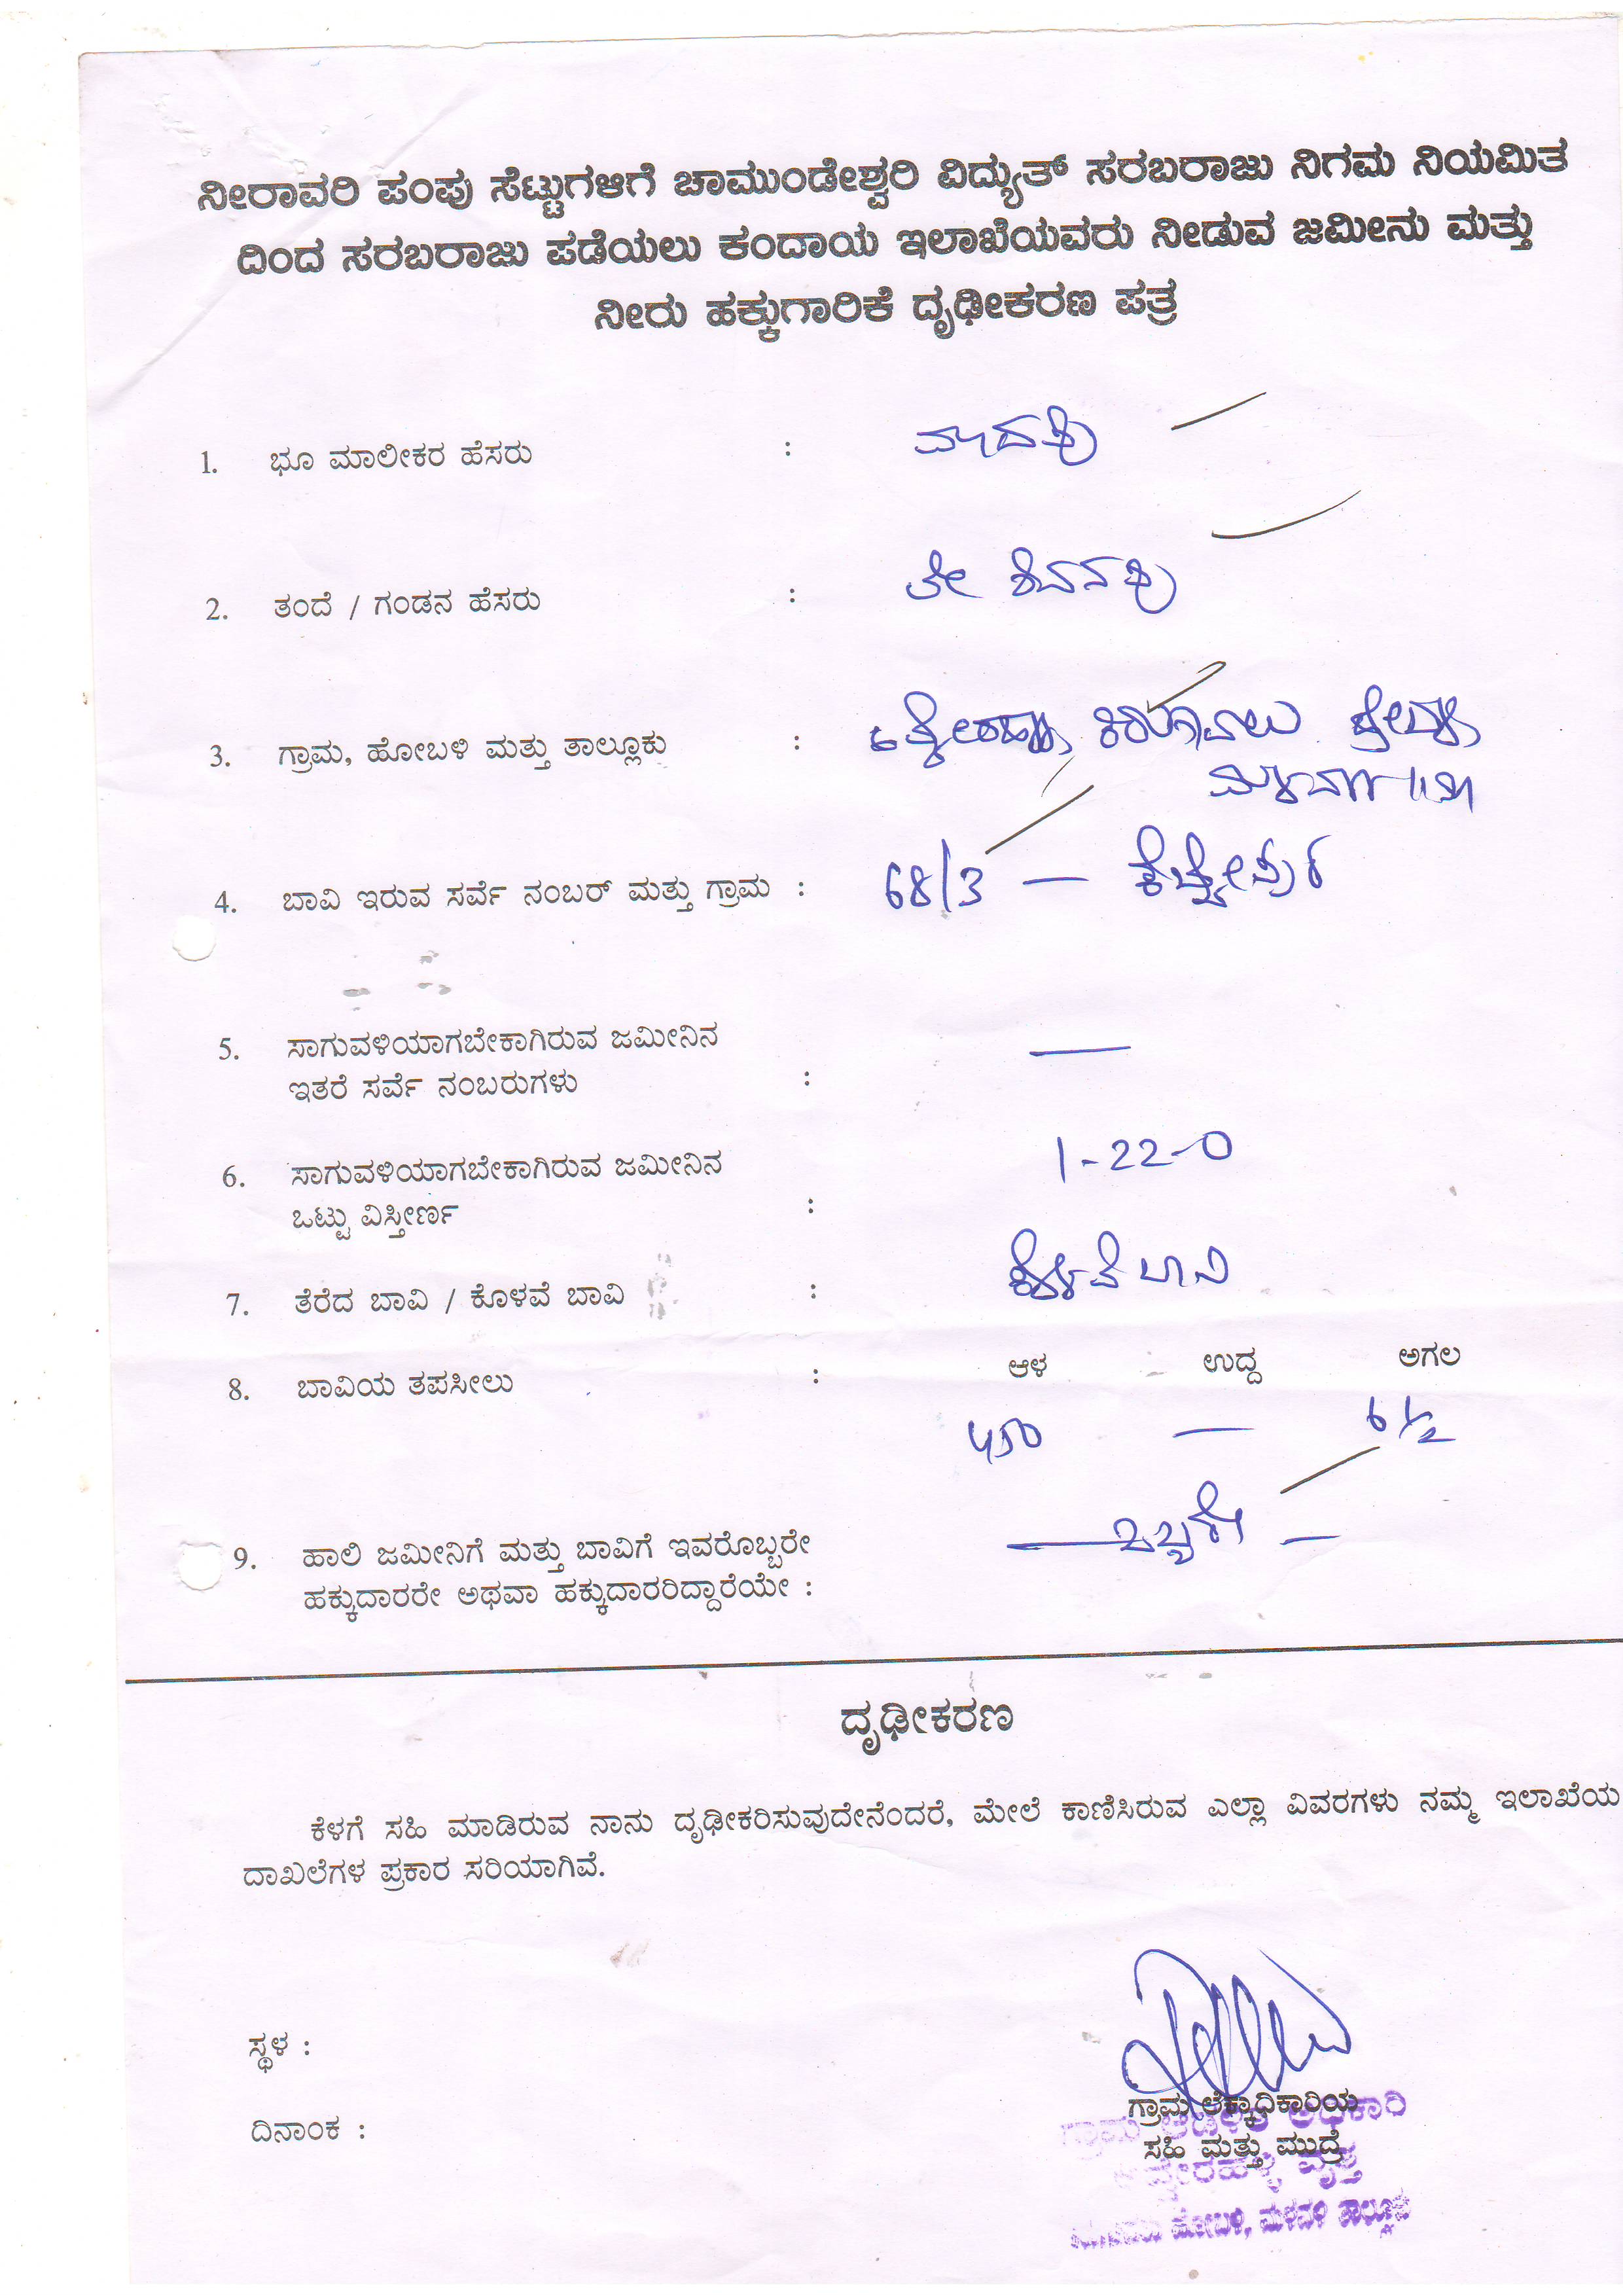 ನೀರಾವರಿ ಪಂಪು ಸೆಟ್ಟುಗಳಿಗೆ ಚಾಮುಂಡೇಶ್ವರಿ ವಿದ್ಯುತ್ ಸರಬರಾಜು ನಿಗಮ ನಿಯಮಿತ
ದಿಂದ ಸರಬರಾಜು ಪಡೆಯಲು ಕಂದಾಯ ಇಲಾಖೆಯವರು ನೀಡುವ ಜಮೀನು ಮತ್ತು
ನೀರು ಹಕ್ಕುಗಾರಿಕೆ ದೃಢೀಕರಣ ಪತ್ರ
1. ಭೂ ಮಾಲೀಕರ ಹೆಸರು :
2. ತಂದೆ / ಗಂಡನ ಹೆಸರು :
3. ಗ್ರಾಮ, ಹೋಬಳಿ ಮತ್ತು ತಾಲ್ಲೂಕು :
4. ಬಾವಿ ಇರುವ ಸರ್ವೆ ನಂಬರ್ ಮತ್ತು ಗ್ರಾಮ : 68/3 —
5. ಸಾಗುವಳಿಯಾಗಬೇಕಾಗಿರುವ ಜಮೀನಿನ
ಇತರೆ ಸರ್ವೆ ನಂಬರುಗಳು : —
6. ಸಾಗುವಳಿಯಾಗಬೇಕಾಗಿರುವ ಜಮೀನಿನ 1-22-0
ಒಟ್ಟು ವಿಸ್ತೀರ್ಣ :
7. ತೆರೆದ ಬಾವಿ / ಕೊಳವೆ ಬಾವಿ : ಕೊಳವೆ ಬಾವಿ
8. ಬಾವಿಯ ತಪಸೀಲು : ಆಳ ಉದ್ದ ಅಗಲ
450 — 6 1/2
9. ಹಾಲಿ ಜಮೀನಿಗೆ ಮತ್ತು ಬಾವಿಗೆ ಇವರೊಬ್ಬರೇ — ಒಬ್ಬರೇ —
ಹಕ್ಕುದಾರರೇ ಅಥವಾ ಹಕ್ಕುದಾರರಿದ್ದಾರೆಯೇ :
ದೃಢೀಕರಣ
ಕೆಳಗೆ ಸಹಿ ಮಾಡಿರುವ ನಾನು ದೃಢೀಕರಿಸುವುದೇನೆಂದರೆ, ಮೇಲೆ ಕಾಣಿಸಿರುವ ಎಲ್ಲಾ ವಿವರಗಳು ನಮ್ಮ ಇಲಾಖೆಯ
ದಾಖಲೆಗಳ ಪ್ರಕಾರ ಸರಿಯಾಗಿವೆ.
ಸ್ಥಳ :
ದಿನಾಂಕ :
ಗ್ರಾಮ ಲೆಕ್ಕಾಧಿಕಾರಿಯ
ಸಹಿ ಮತ್ತು ಮುದ್ರೆ
ಗ್ರಾಮ ಆಡಳಿತ ಅಧಿಕಾರಿ
ವೃತ್ತ
ಹೋಬಳಿ, ಮಳವಳ್ಳಿ ತಾಲ್ಲೂಕು